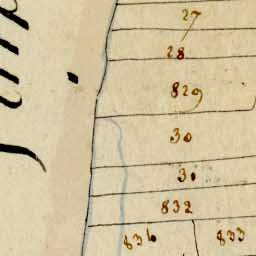 27
28
829
30
30
832
836 833